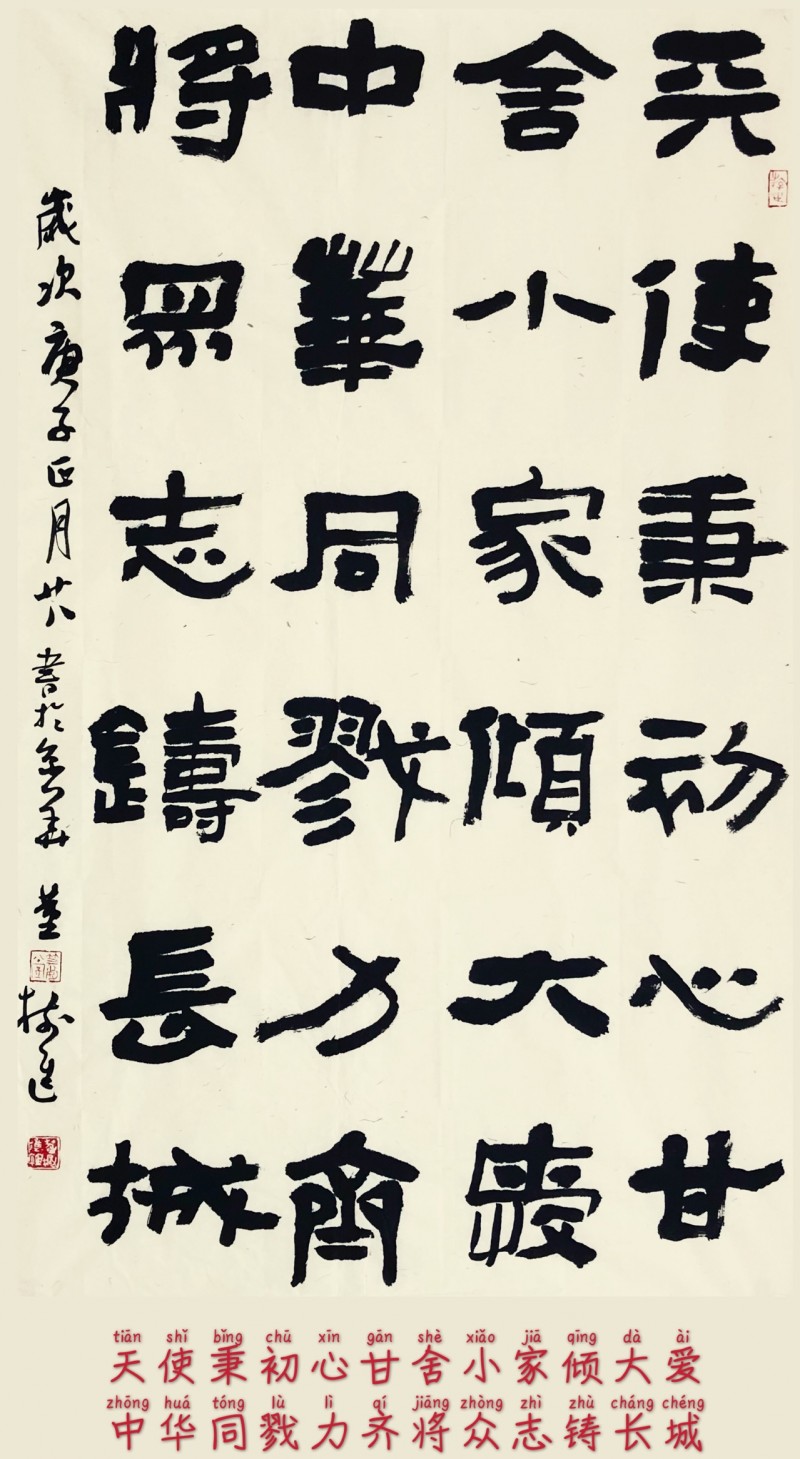 天使秉初心甘
舍小家傾大愛
中華同戮力齊
將眾志鑄長城
歲次庚子正月廿八書於金華
tiān shǐ bǐng chū xīn gān shè xiǎo jiā qīng dà ài
天使秉初心甘舍小家倾大爱
zhōng huá tóng lù lì qí jiāng zhòng zhì zhù cháng chéng
中华同戮力齐将众志铸长城